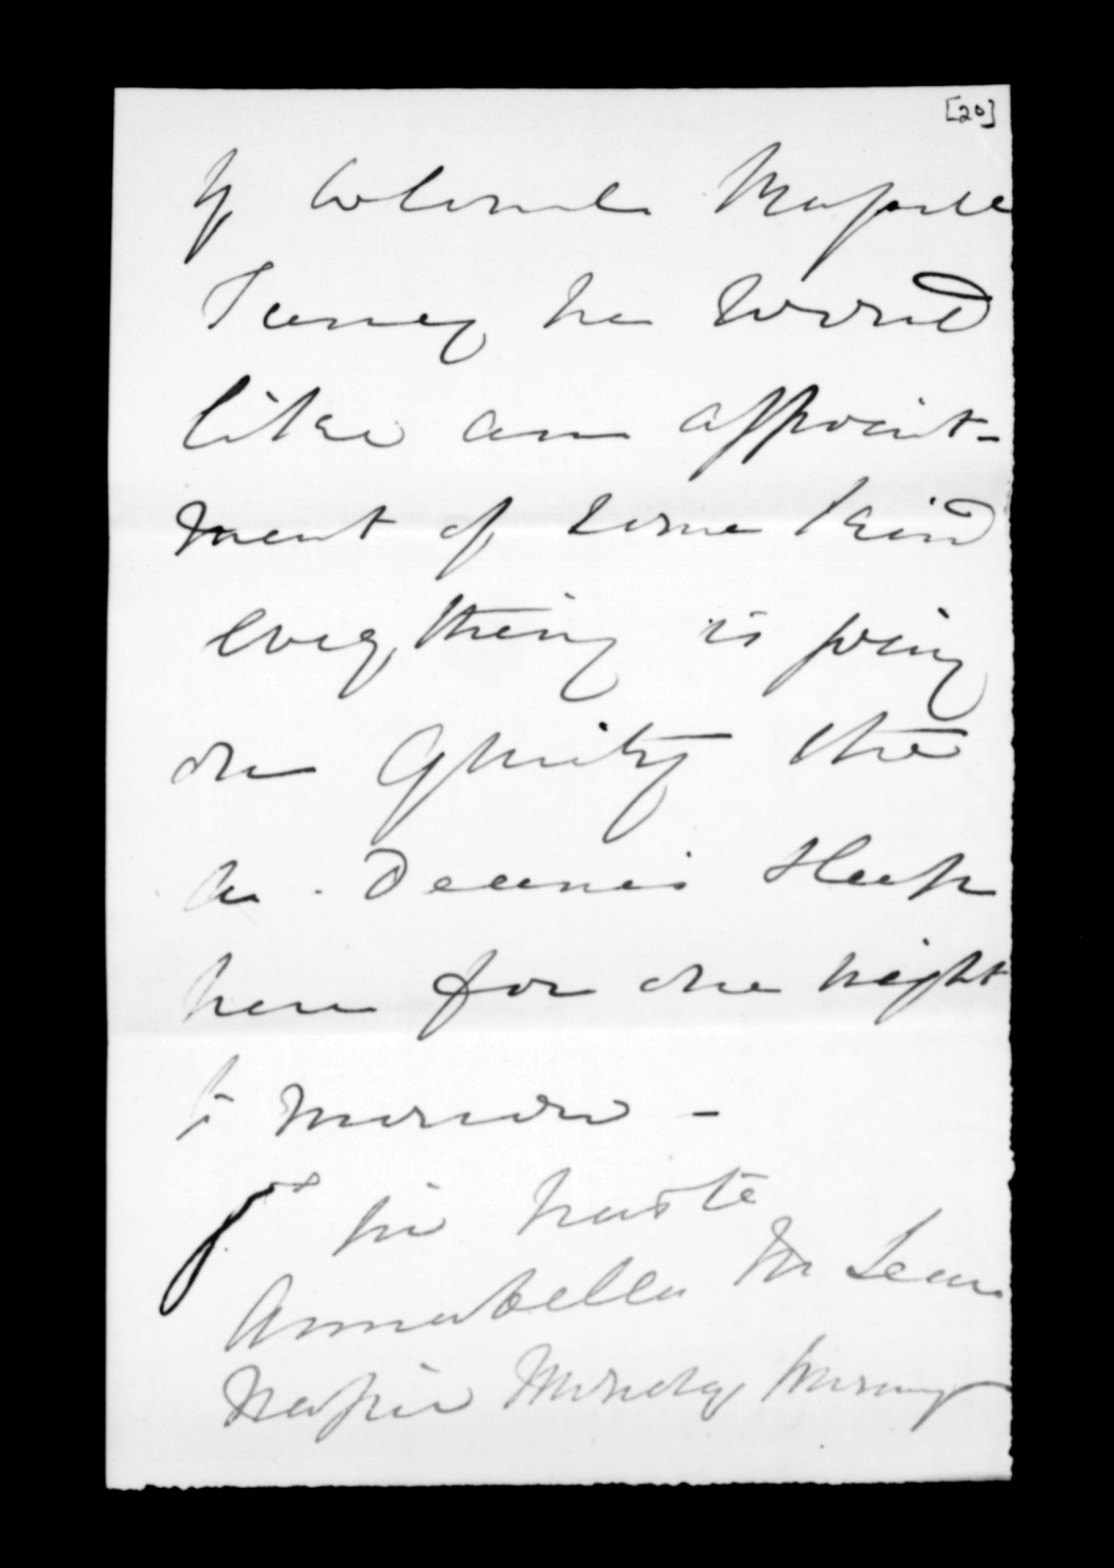 [20]
of Colonel Russell
I fancy he would
like an appoint-
ment of some kind
everything is going
on quietly the
Deccanis sleep
here for one night
to morrow -
yrs in haste
Annabella McLean
Napier Monday Morning